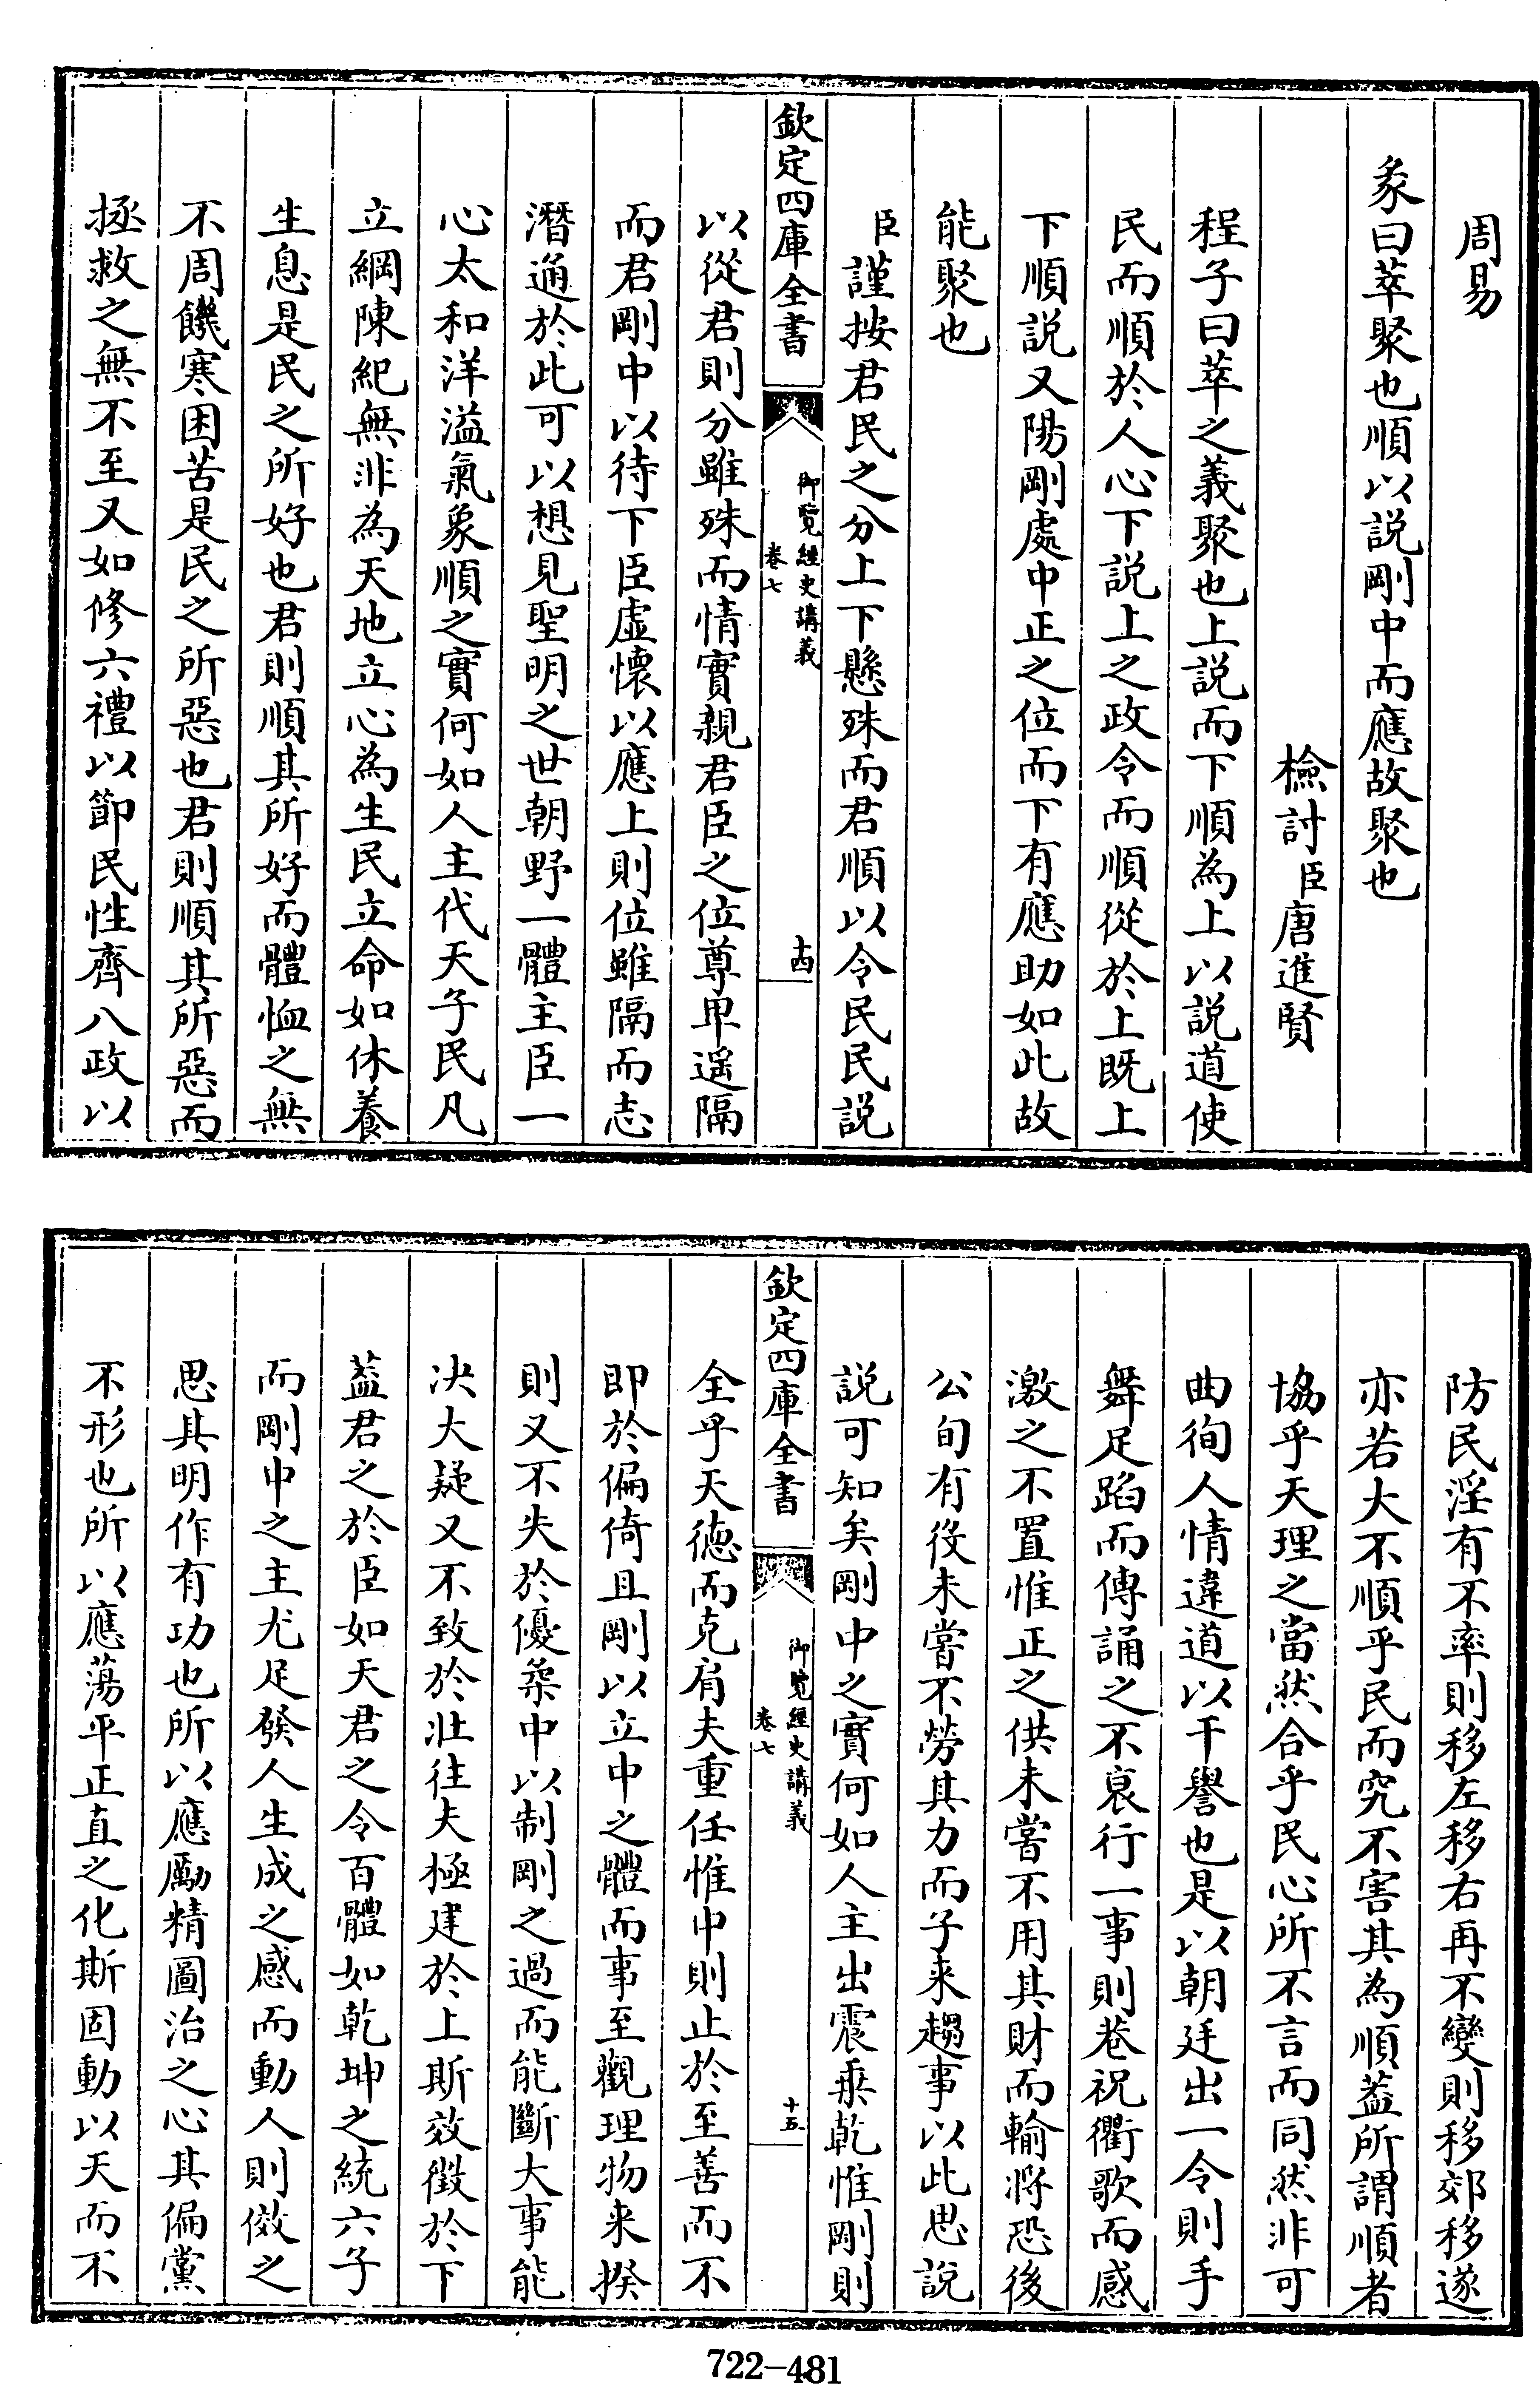 周易
彖曰萃聚也順以説剛中而應故聚也
檢討臣唐進賢
程子曰萃之義聚也上説而下順為上以説道使
民而順於人心下説上之政令而順從於上既上
下順説又陽剛處中正之位而下有應助如此故
能聚也
臣謹按君民之分上下懸殊而君順以令民民説
欽定四庫全書
御覽經史講義
卷七
十四
以從君則分雖殊而情實親君臣之位尊卑遥隔
而君剛中以待下臣虛懷以應上則位雖隔而志
潛通於此可以想見聖明之世朝野一體主臣一
心太和洋溢氣象順之實何如人主代天子民凡
立綱陳紀無非為天地立心為生民立命如休養
生息是民之所好也君則順其所好而體恤之無
不周饑寒困苦是民之所惡也君則順其所惡而
拯救之無不至又如修六禮以節民性齊八政以
防民淫有不率則移左移右再不變則移郊移遂
亦若大不順乎民而究不害其為順葢所謂順者
協乎天理之當然合乎民心所不言而同然非可
曲徇人情違道以干譽也是以朝廷出一令則手
舞足蹈而傳誦之不衰行一事則巷祝衢歌而感
激之不置惟正之供未嘗不用其財而輸將恐後
公旬有役未嘗不勞其力而子来趨事以此思說
說可知矣剛中之實何如人主出震乘乾惟剛則
欽定四庫全書
御覽經史講義
卷七
十五
全乎天徳而克肩夫重任惟中則止於至善而不
即於偏倚且剛以立中之體而事至觀理物来揆
則又不失於優柔中以制剛之過而能斷大事能
决大疑又不致於壯往夫極建於上斯效徴於下
葢君之於臣如天君之令百體如乾坤之統六子
而剛中之主尤足發人生成之感而動人則傚之
思其明作有功也所以應勵精圖治之心其偏黨
不形也所以應蕩平正直之化斯固動以天而不
722-481